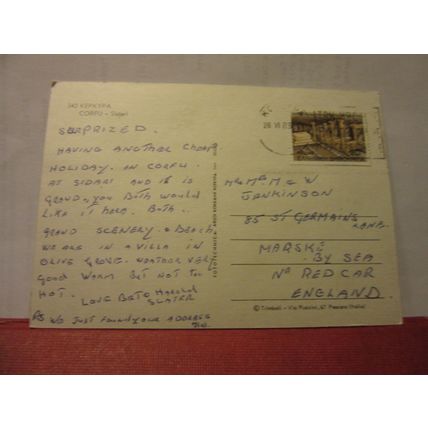 342 ΚΕΡΚΥΡΑ
CORFU – Sidari
SURPRIZED.
HAVING ANOTHER CHEAP
HOLIDAY. IN CORFU.
AT SIDARI AND IT IS
GRAND, YOU BOTH WOULD
LIKE IT HERE. BOTH.
GRAND SCENERY. & BEACH
WE ARE IN A VILLA IN
OLIVE GROVE. WEATHER VERY
GOOD WARM BUT NOT TOO
HOT.
LOVE BETO HAROLD
SLATER
PS WE JUST FOUND YOUR ADDRESS
MR MRS M & W
JENKINSON
85 ST GERMAINS
LANE
MARSKE
BY SEA
NR REDCAR
ENGLAND.
© Trimboli – Via Puccini, 67 Pescara (Italia)